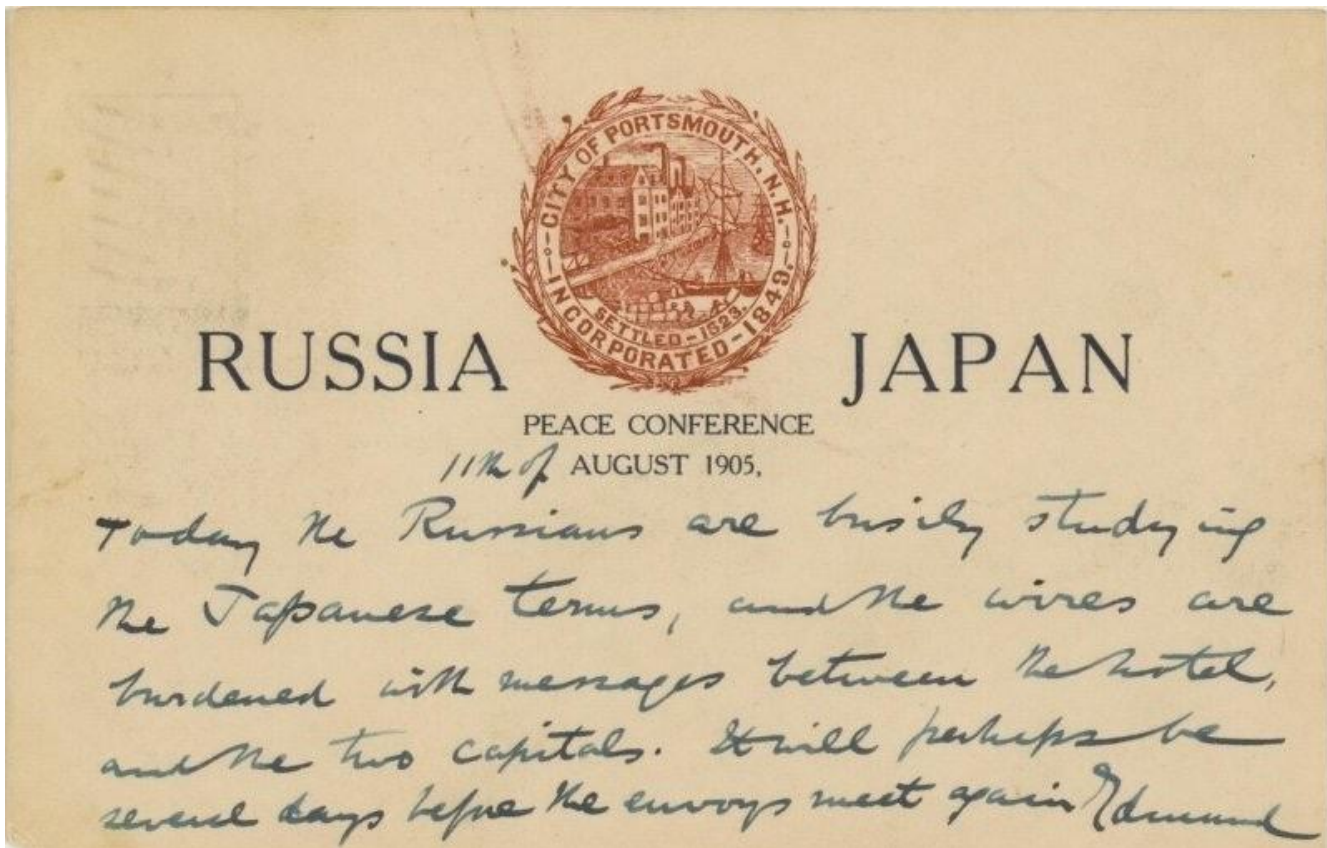 CITY OF PORTSMOUTH, N.H.
INCORPORATED-1849.
SETTLED-1623.
RUSSIA JAPAN
PEACE CONFERENCE
11th of AUGUST 1905.
Today the Russians are busily studying
the Japanese terms, and the wires are
burdened with messages between the hotel,
and the two capitals. It will perhaps be
several days before the envoys meet again Edmund